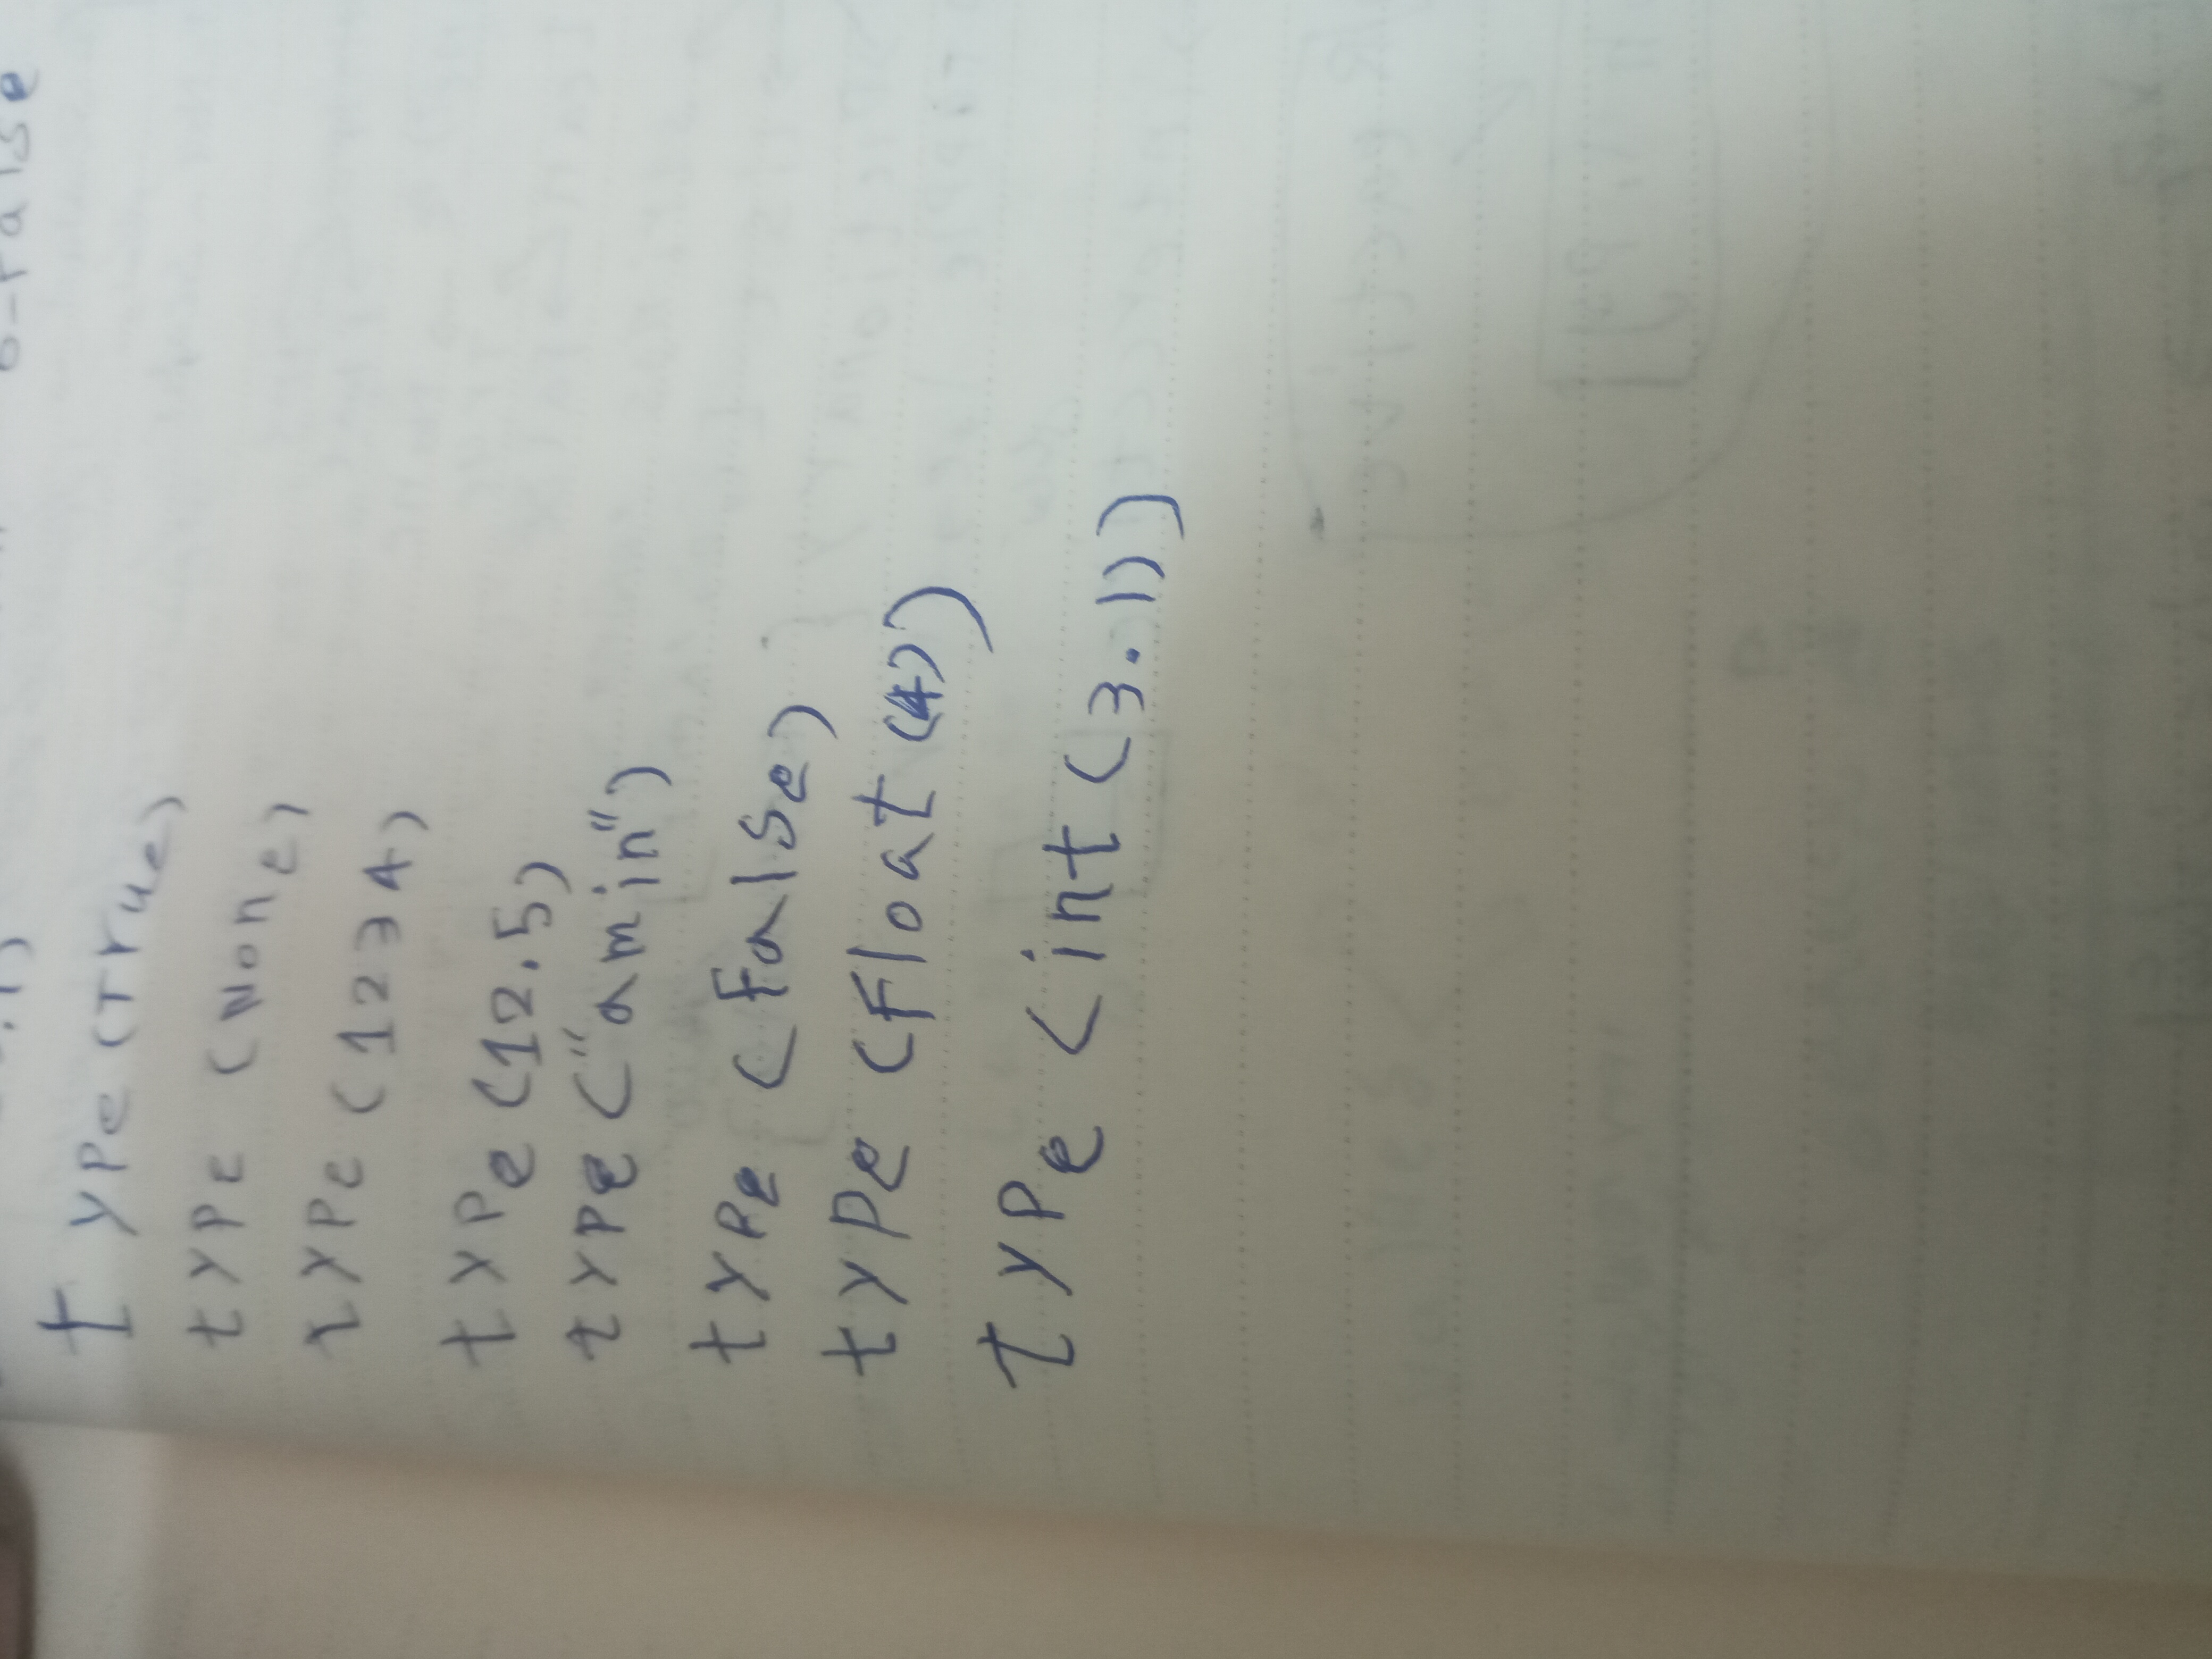 type (True)
type (None)
type (1234)
type (12.5)
type ("amin")
type (False)
type (Float (4))
type (int (3.1))